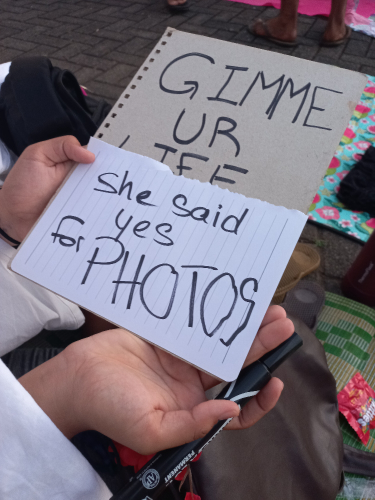 GIMME
UR
LIFE
She Said
yes
for PHOTOS
PERMANENT